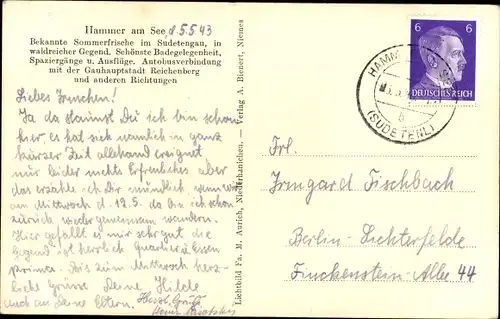 Hammer am See, d 5.5.43
Bekannte Sommerfrische im Sudetengau, in
waldreicher Gegend. Schönste Badegelegenheit,
Spaziergänge u. Ausflüge. Autobusverbindung
mit der Gauhauptstadt Reichenberg
und anderen Richtungen
Liebes Irmchen!
Ja da staunst Du ich bin schon
hier, es hat sich nämlich in ganz
kurzer Zeit allerhand ereignet
nur leider nichts Erfreuliches aber
das erzähle ich Dir mündlich wenn wir
am Mittwoch d. 12.5. da bin ich schon
zurück wieder gemeinsam wandern.
Hier gefällt es mir sehr gut die
Gegend ist herrlich Quartier & Essen
prima. Bis zum Mittwoch herz-
liche Grüsse Deine Hilde
auch an Deine Eltern.
Herzl. Grüße
Lichtbild Fa. M. Aurich, Niederhanichen. — Verlag A. Bienert, Niemes
6 6
DEUTSCHES REICH
HAMM
b
(SUDETENL)
Frl.
Irmgard Fischbach
Berlin-Lichterfelde
Finckenstein-Allee 44